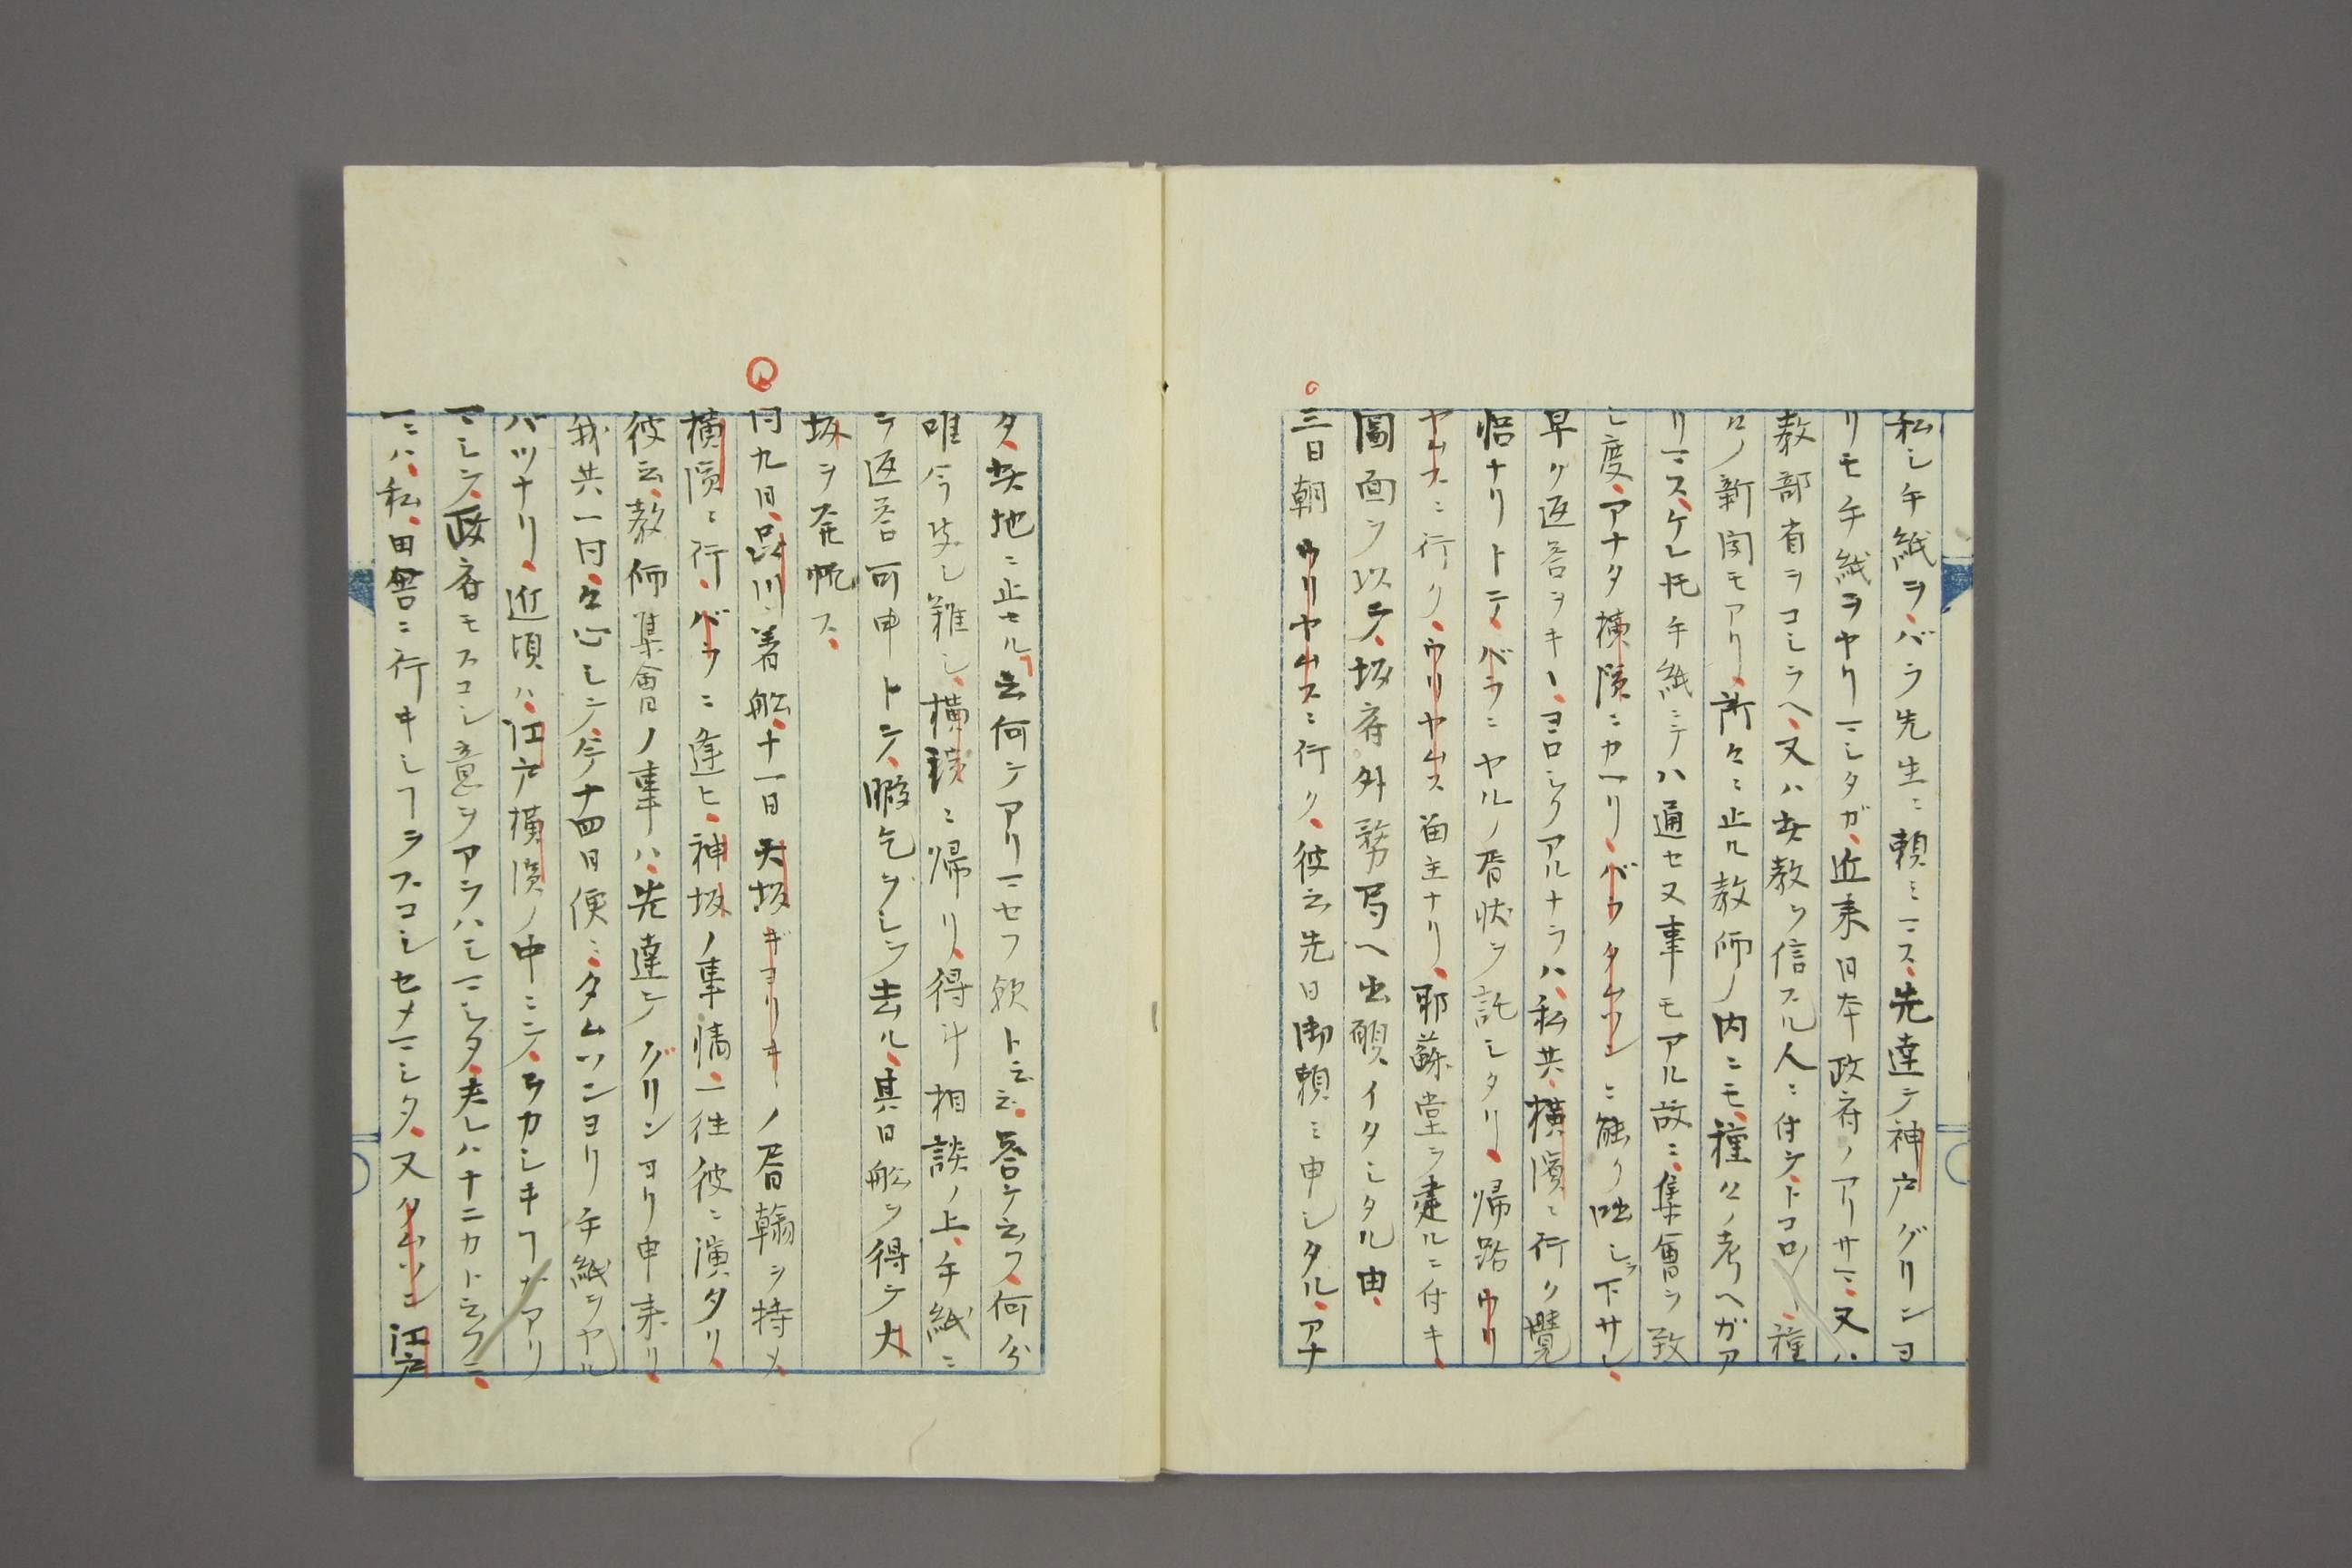 私シ手紙ヲ、バラ先生ニ頼ミマス、先達テ神戸グリンヨ
リモ手紙ヲヤリマシタガ、近来日本政府ノアリサマ、又ハ
教部省ヲコシラヘ、又ハ其教ヲ信スル人ニ付テ、トコロ〳〵、種
ロノ新聞モアリ、所々ニ止ル教師ノ内ニモ、種々ノ考ヘガア
リマス、ケレ𪜈手紙ニテハ通セヌ事モアル故ニ、集會ヲ致
シ度、アナタ横濱ニカヘリ、バラタムソンニ能ク咄シヲ下サレ、
早ク返答ヲキヽ、ヨロシクアルナラハ、私共、横濱ニ行ク覺
悟ナリトテ、バラニヤルノ書状ヲ託シタリ、帰路ウリ
ヤムスニ行ク、ウリヤムス留主ナリ、耶蘇堂ヲ建ルニ付キ、
圖面ヲ以テ、坂府外務局ヘ出願イタシタル由、
三日朝ウリヤムスニ行ク、彼云先日御頼ミ申シタル、アナ
タ、其地ニ止セル、云何テアリマセフ歟ト云云、答テ云フ、何分
唯今決シ難シ、横濱ニ帰リ、得ト相談ノ上、手紙ニ
テ返答可申トテ、暇乞ヲシテ去ル、其日船ヲ得テ大
坂ヲ発帆ス、
同九日、品川ニ着船、十一日大坂ギヨリキーノ書翰ヲ持メ、
横濱ニ行、バラニ逢ヒ、神坂ノ事情、一往彼ニ演タリ、
彼云、教師集會ノ事ハ、先達テグリンヨリ申来リ、
我共一同、仝心シテ、今十四日便ニ、タムソンヨリ手紙ヲヤル
ハツナリ、近頃ハ、江戸横濱ノ中ニテ、ヲカシキヿガアリ
マシテ、政府モスコシ意ヲアラハシマシタ、夫レハナニカト云フニ、
一ニハ、私、田舎ニ行キシヿヲスコシセメマシタ、又タムソン江戸